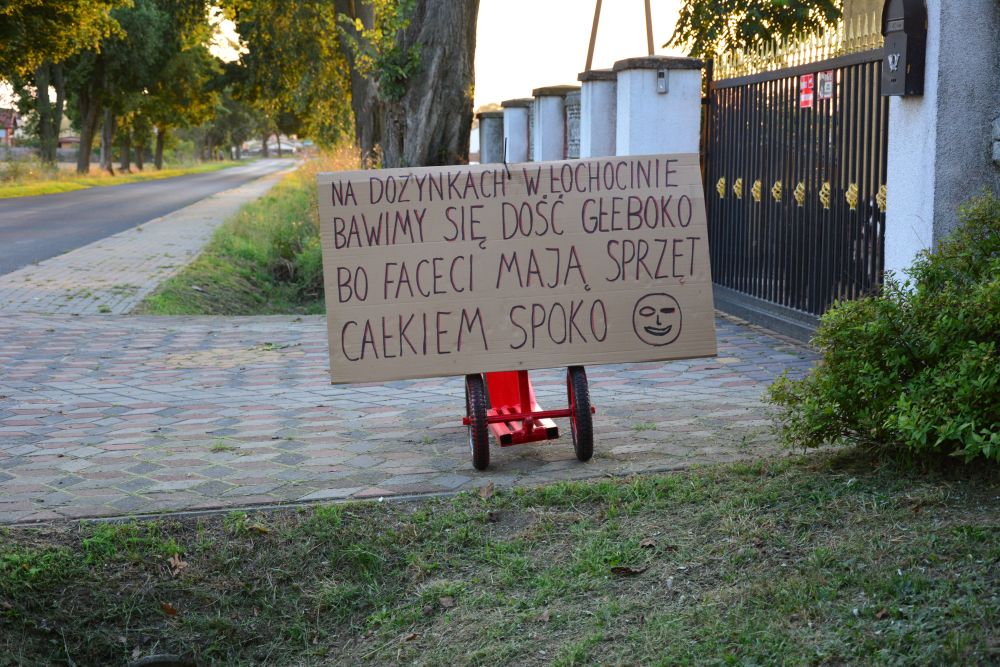 NA DOŻYNKACH W ŁOCHOCINIE
BAWIMY SIĘ DOŚĆ GŁEBOKO
BO FACECI MAJĄ SPRZĘT
CAŁKIEM SPOKO